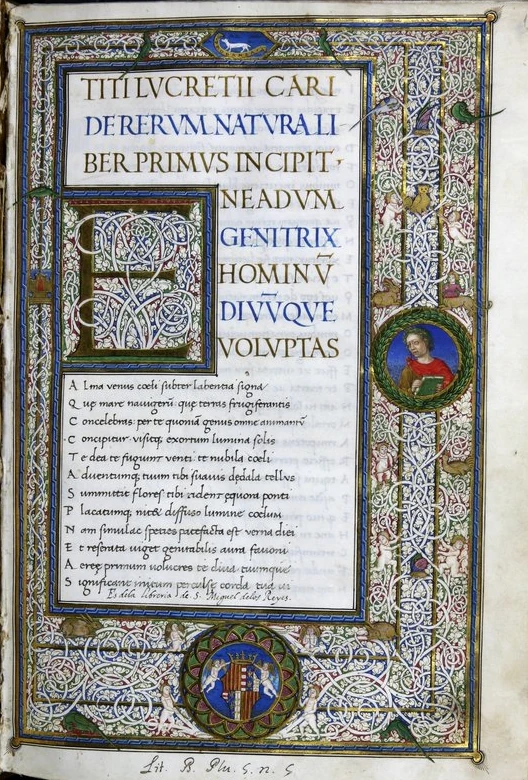 TITI LVCRETII CARI
DE RERVM NATVRA LI
BER PRIMVS INCIPIT·
ENEADVM
GENITRIX
HOMINV̄
DIVV̄QVE
VOLVPTAS
Alma venus cœli subter labentia signa
Quę mare nauigerū quę terras frugiferantis
Concelebras: per te quoniā genus omne animantū
Concipitur visitq; exortum lumina solis
Te dea te fugiunt venti te nubila cœli
Aduentumq; tuum tibi suauis dędala tellus
Summittit flores tibi rident ęquora ponti
Placatumq; nitet diffuso lumine coelum
Nam simulac species patefacta est verna diei
Et reserata uiget genitabilis aura fauoni
Aereę primum uolucres te diua tuumque
Significant initum perculsę corda tua ui
Es dela libreria de S. Miguel delos Reyes.
Lit. B. Plu. 5. n. 5